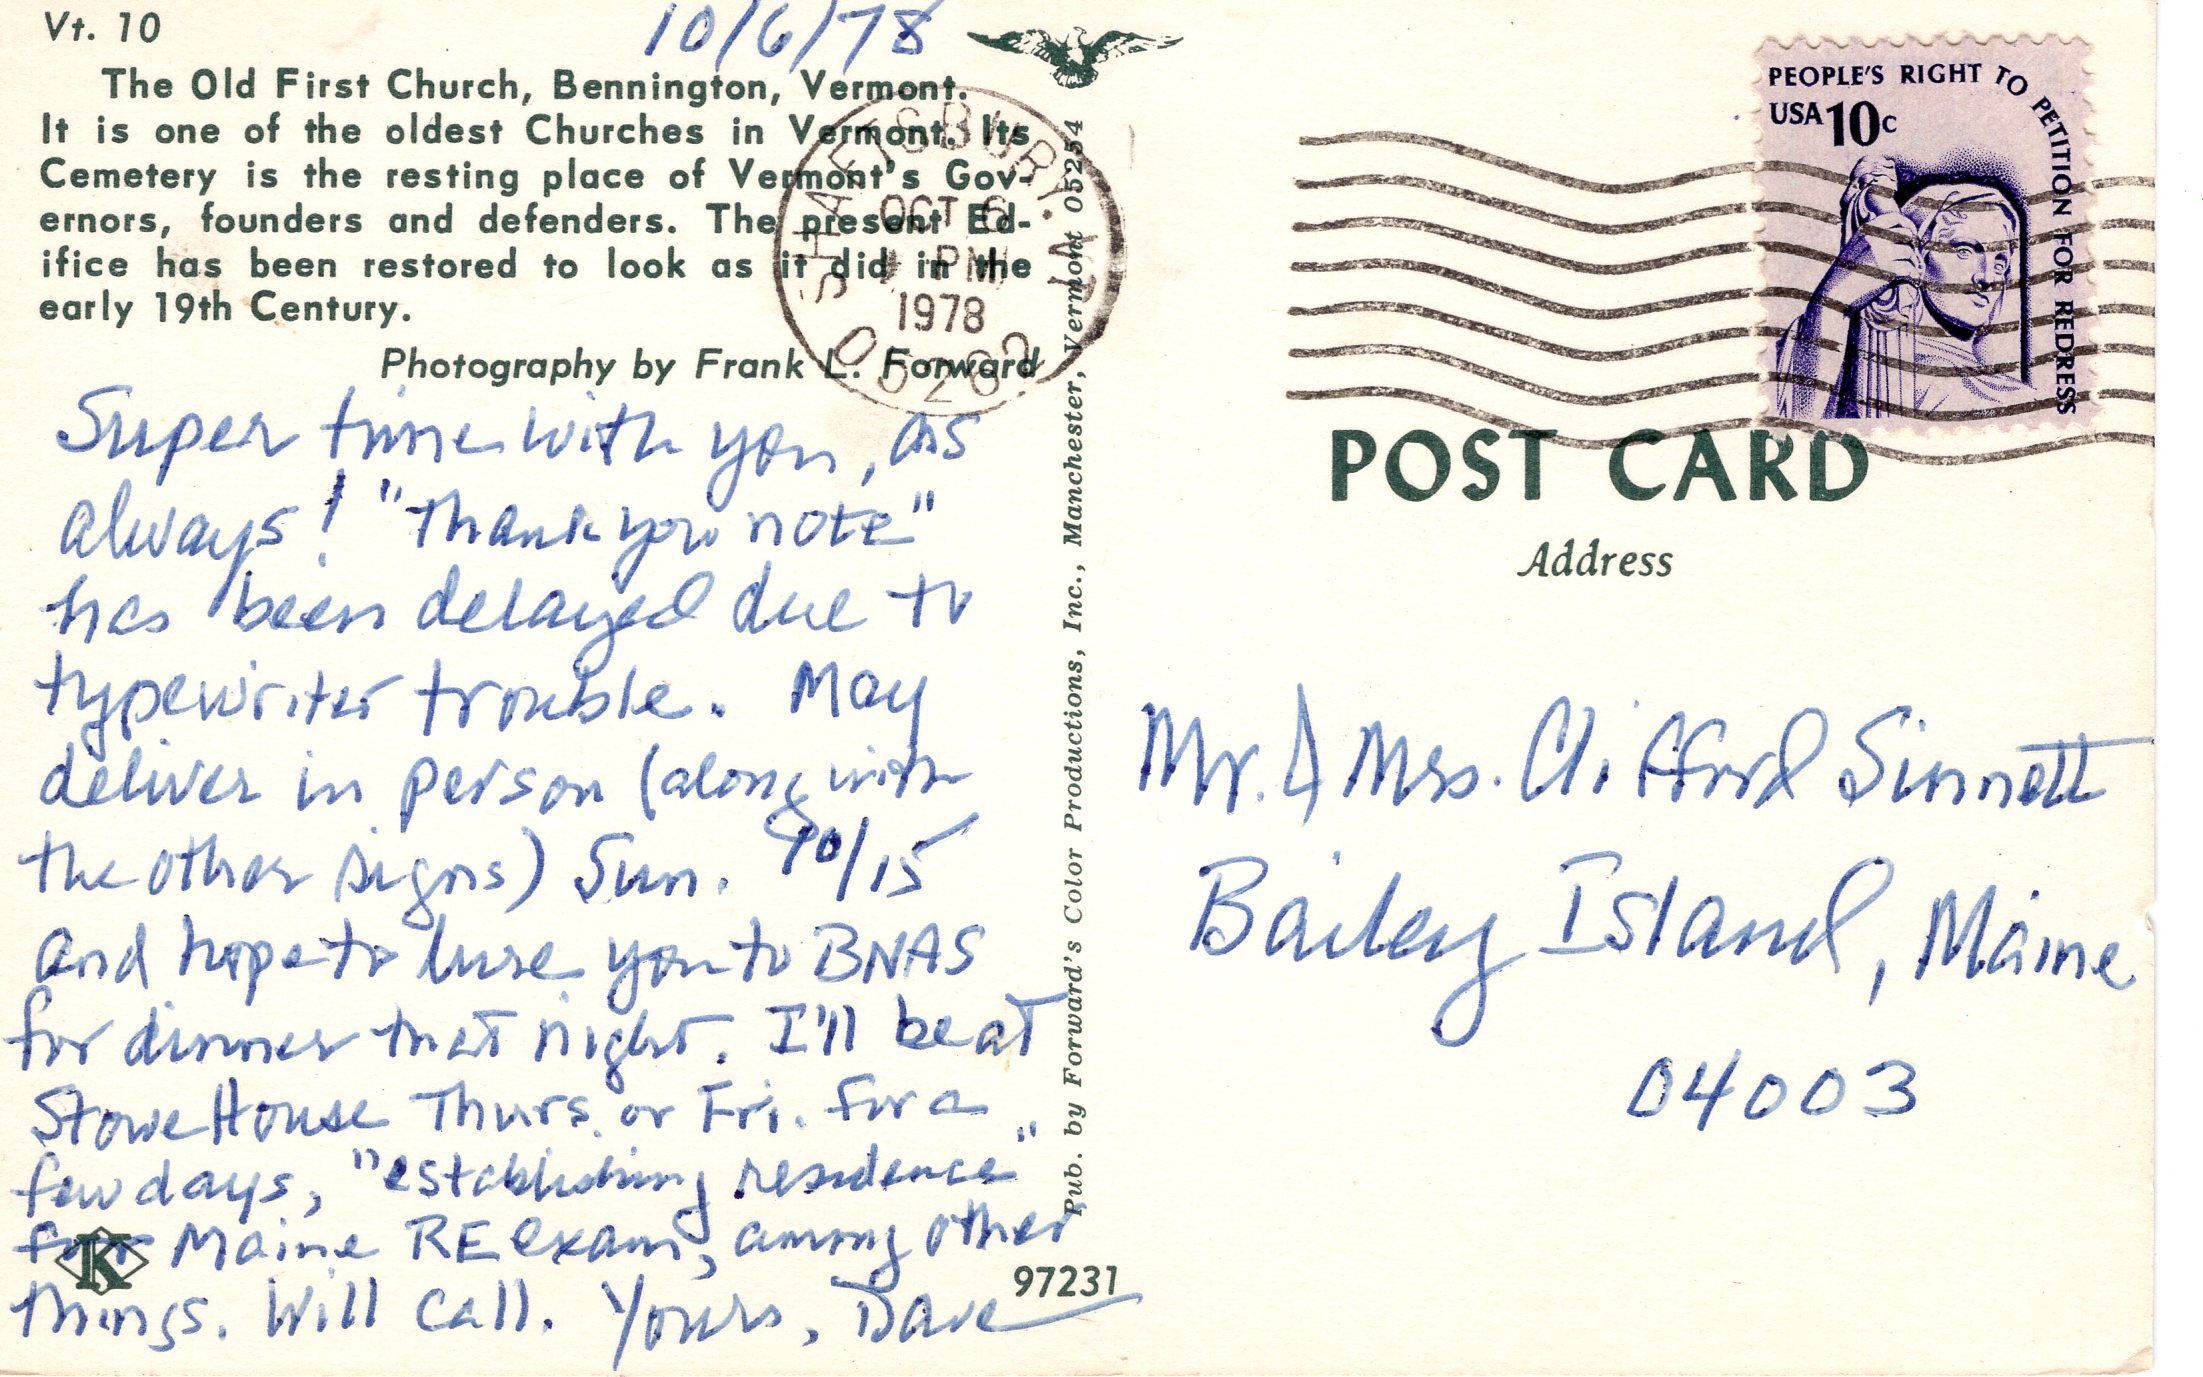 Vt. 10
10/6/78
The Old First Church, Bennington, Vermont.
It is one of the oldest Churches in Vermont. Its
Cemetery is the resting place of Vermont's Gov-
ernors, founders and defenders. The present Ed-
ifice has been restored to look as it did in the
early 19th Century.
Photography by Frank L. Forward
SHAFTSBURY,
OCT 6
PM
1978
Super time with you, as
always! "thank you note"
has been delayed due to
typewriter trouble. May
deliver in person (along with
the other signs) Sun. 10/15
and hope to lure you to BNAS
for dinner that night. I'll be at
Stowe House Thurs. or Fri. for a
few days, "establishing residence"
for Maine RE exam, among other
things. Will call. Yours, Dave
K
97231
Pub. by Forward's Color Productions, Inc., Manchester, Vermont 05254
PEOPLE'S RIGHT TO PETITION FOR REDRESS
USA 10c
POST CARD
Address
Mr. & Mrs. Clifford Sinnett
Bailey Island, Maine
04003